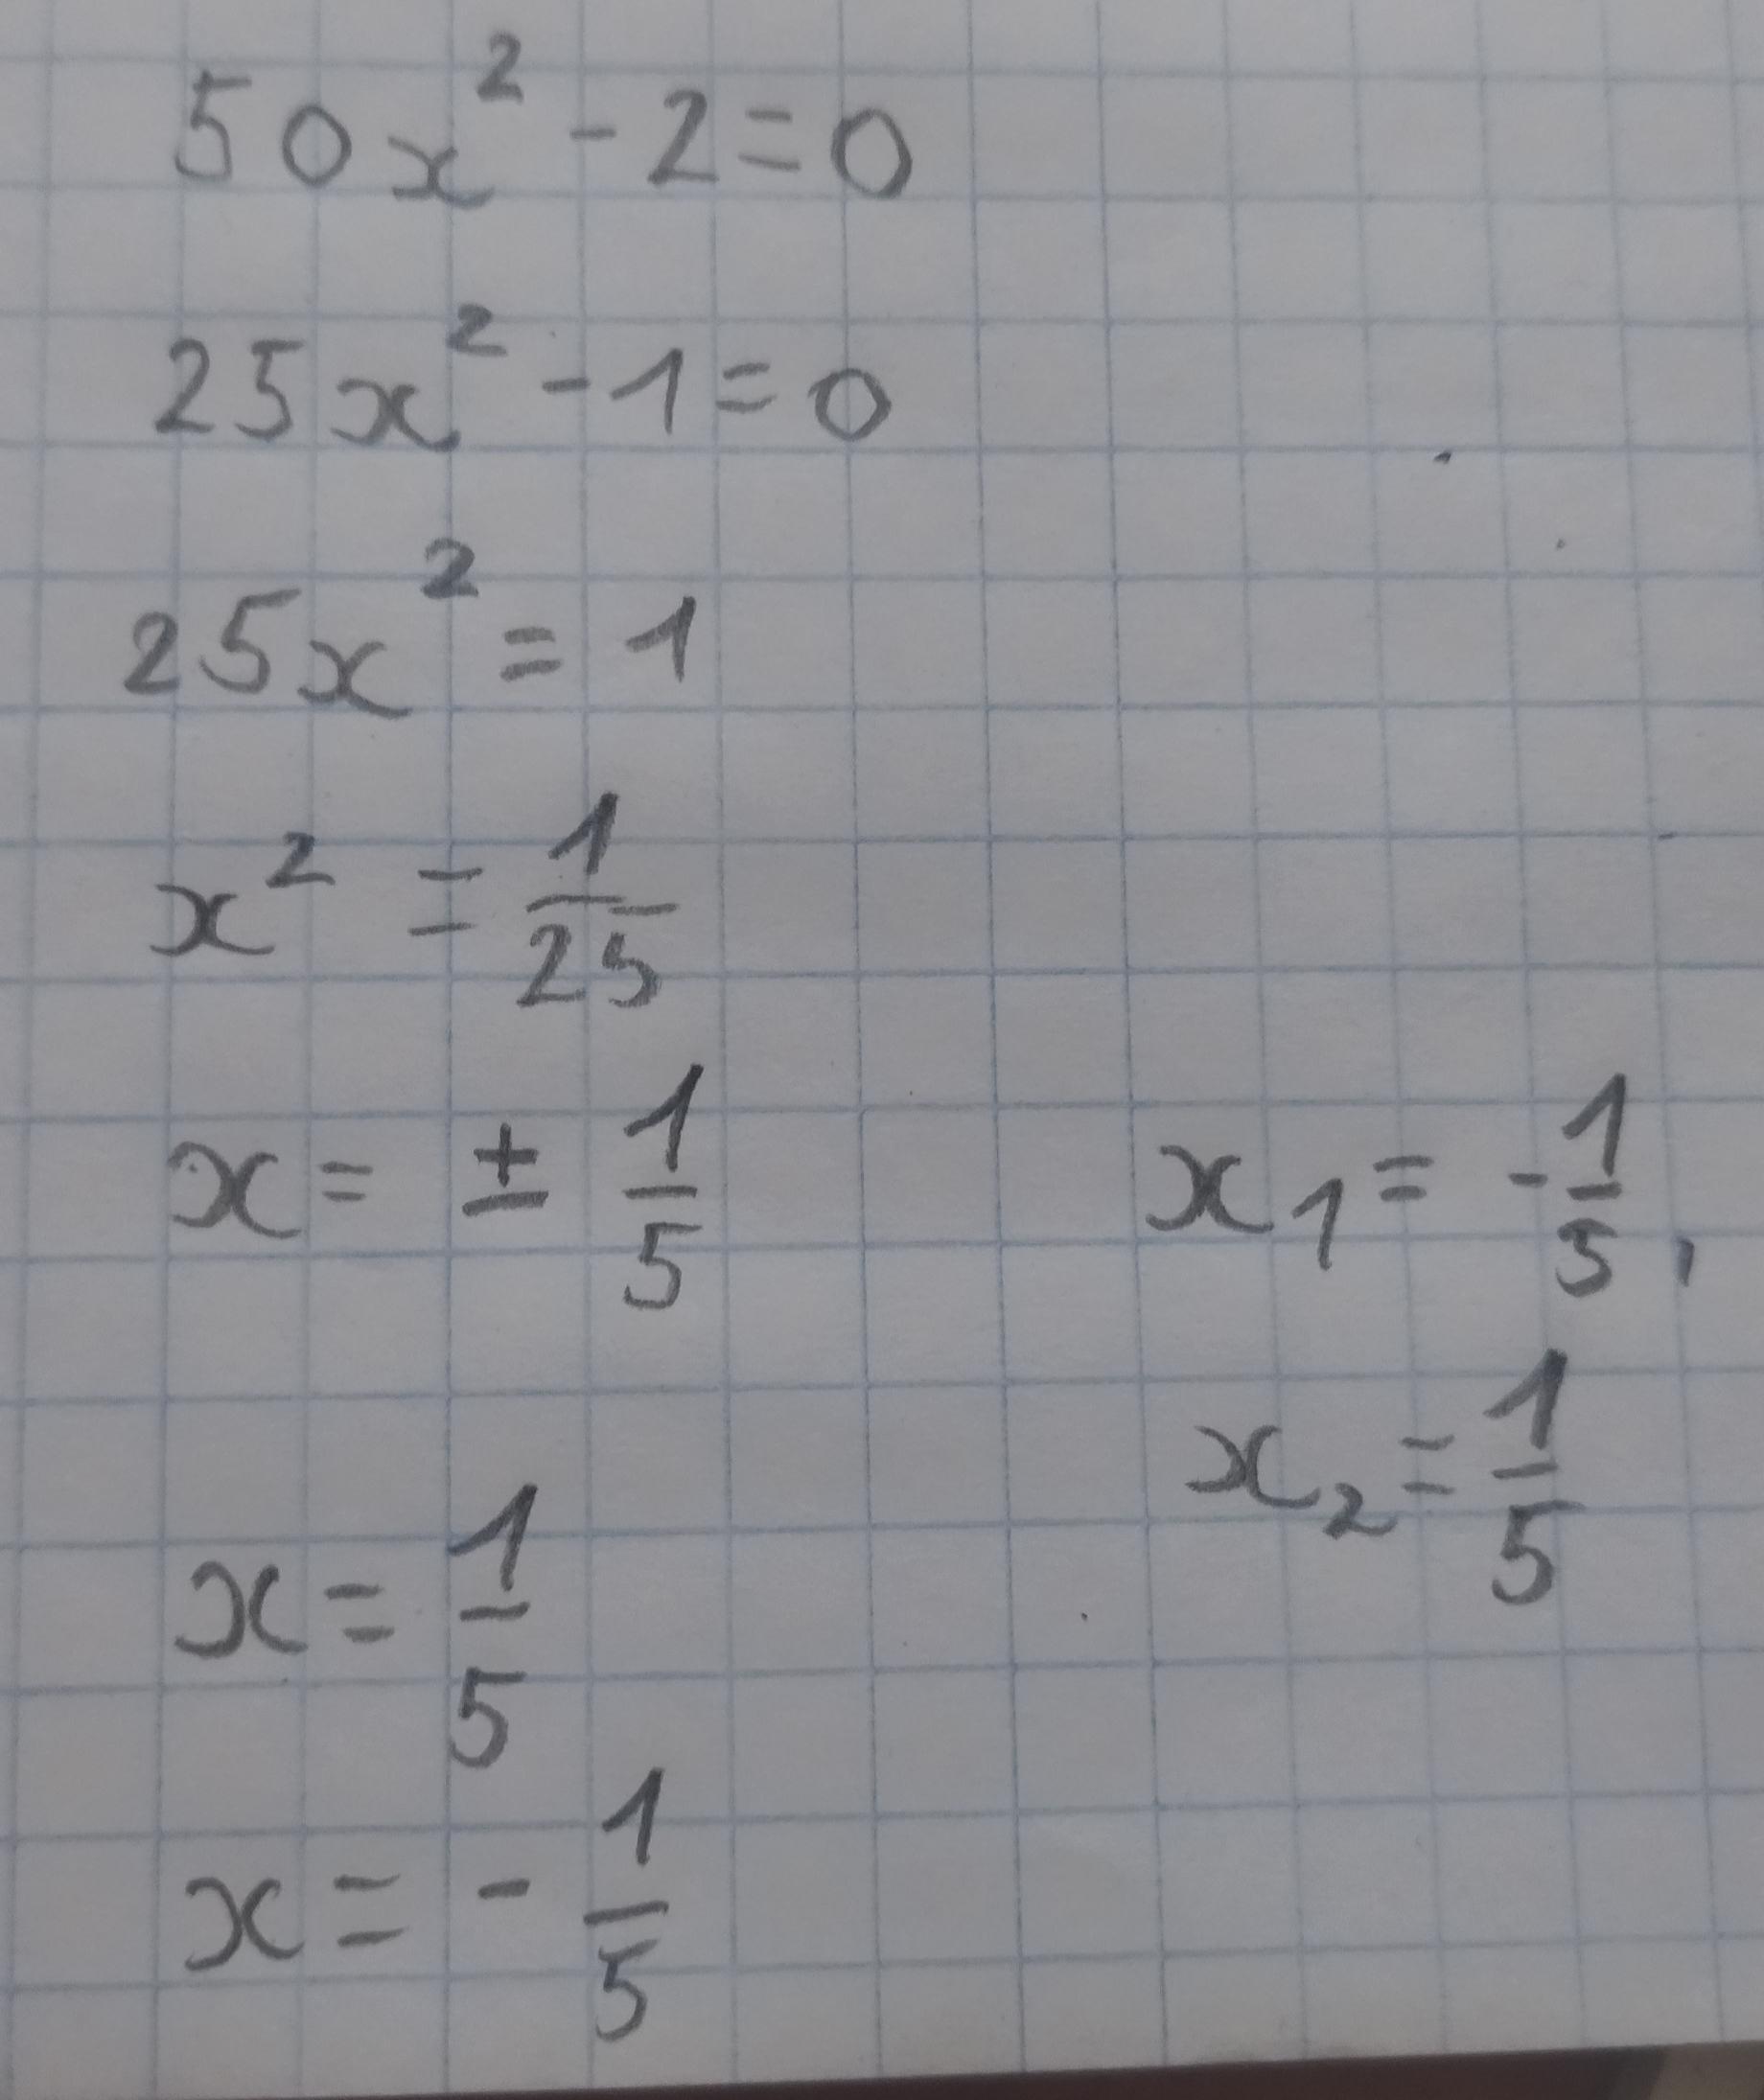 50x² - 2 = 0
25x² - 1 = 0
25x² = 1
x² = 1/25
x = ± 1/5
x = 1/5
x = - 1/5
x₁ = - 1/5 ,
x₂ = 1/5